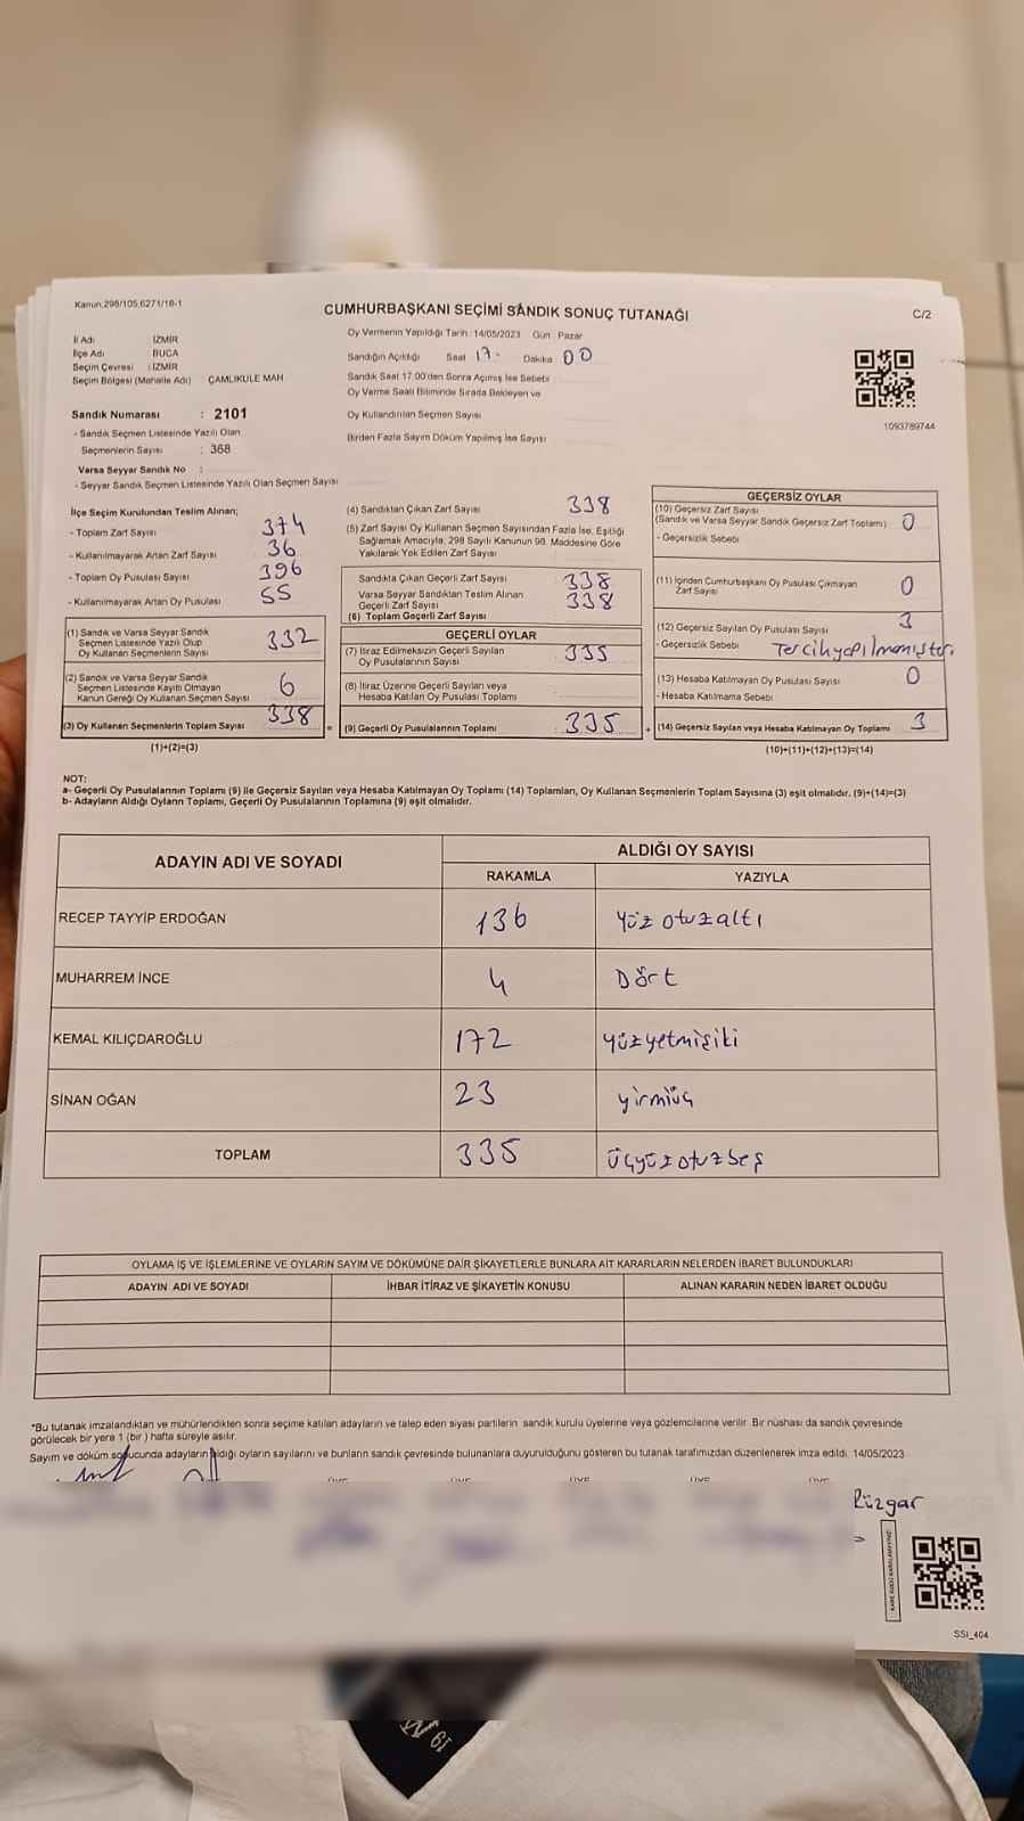 Kanun, 298/105,6271/16-1
CUMHURBAŞKANI SEÇİMİ SANDIK SONUÇ TUTANAĞI
C/2
İl Adı : İZMİR
İlçe Adı : BUCA
Seçim Çevresi : İZMİR
Seçim Bölgesi (Mahalle Adı) : ÇAMLIKULE MAH
Sandık Numarası : 2101
- Sandık Seçmen Listesinde Yazılı Olan
Seçmenlerin Sayısı : 368
Varsa Seyyar Sandık No :
- Seyyar Sandık Seçmen Listesinde Yazılı Olan Seçmen Sayısı
Oy Vermenin Yapıldığı Tarih : 14/05/2023 Gün : Pazar
Sandığın Açıklığı Saat 17 Dakika 00
Sandık Saat 17.00'den Sonra Açılmış İse Sebebi
Oy Verme Saati Bitiminde Sırada Bekleyen ve
Oy Kullandırılan Seçmen Sayısı
Birden Fazla Sayım Döküm Yapılmış İse Sayısı
1093789744
İlçe Seçim Kurulundan Teslim Alınan;
- Toplam Zarf Sayısı 374
- Kullanılmayarak Artan Zarf Sayısı 36
- Toplam Oy Pusulası Sayısı 396
- Kullanılmayarak Artan Oy Pusulası 55
(1) Sandık ve Varsa Seyyar Sandık
Seçmen Listesinde Yazılı Olup
Oy Kullanan Seçmenlerin Sayısı 332
(2) Sandık ve Varsa Seyyar Sandık
Seçmen Listesinde Kayıtlı Olmayan
Kanun Gereği Oy Kullanan Seçmen Sayısı 6
(3) Oy Kullanan Seçmenlerin Toplam Sayısı 338
(1)+(2)=(3)
(4) Sandıktan Çıkan Zarf Sayısı 338
(5) Zarf Sayısı Oy Kullanan Seçmen Sayısından Fazla İse, Eşitliği
Sağlamak Amacıyla, 298 Sayılı Kanunun 98. Maddesine Göre
Yakılarak Yok Edilen Zarf Sayısı
Sandıkta Çıkan Geçerli Zarf Sayısı 338
Varsa Seyyar Sandıktan Teslim Alınan
Geçerli Zarf Sayısı 338
(6) Toplam Geçerli Zarf Sayısı
GEÇERLİ OYLAR
(7) İtiraz Edilmeksizin Geçerli Sayılan
Oy Pusulalarının Sayısı 335
(8) İtiraz Üzerine Geçerli Sayılan veya
Hesaba Katılan Oy Pusulası Toplamı
= (9) Geçerli Oy Pusulalarının Toplamı 335
GEÇERSİZ OYLAR
(10) Geçersiz Zarf Sayısı
(Sandık ve Varsa Seyyar Sandık Geçersiz Zarf Toplamı) 0
- Geçersizlik Sebebi
(11) İçinden Cumhurbaşkanı Oy Pusulası Çıkmayan
Zarf Sayısı 0
(12) Geçersiz Sayılan Oy Pusulası Sayısı 3
- Geçersizlik Sebebi Tercihyapılmamıştır.
(13) Hesaba Katılmayan Oy Pusulası Sayısı 0
- Hesaba Katılmama Sebebi
+ (14) Geçersiz Sayılan veya Hesaba Katılmayan Oy Toplamı 3
(10)+(11)+(12)+(13)=(14)
NOT:
a- Geçerli Oy Pusulalarının Toplamı (9) ile Geçersiz Sayılan veya Hesaba Katılmayan Oy Toplamı (14) Toplamları, Oy Kullanan Seçmenlerin Toplam Sayısına (3) eşit olmalıdır. (9)+(14)=(3)
b- Adayların Aldığı Oyların Toplamı, Geçerli Oy Pusulalarının Toplamına (9) eşit olmalıdır.
ADAYIN ADI VE SOYADI
ALDIĞI OY SAYISI
RAKAMLA YAZIYLA
RECEP TAYYİP ERDOĞAN 136 Yüz otuzaltı
MUHARREM İNCE 4 Dört
KEMAL KILIÇDAROĞLU 172 yüzyetmişiki
SİNAN OĞAN 23 yirmiüç
TOPLAM 335 üçyüzotuzbeş
OYLAMA İŞ VE İŞLEMLERİNE VE OYLARIN SAYIM VE DÖKÜMÜNE DAİR ŞİKAYETLERLE BUNLARA AİT KARARLARIN NELERDEN İBARET BULUNDUKLARI
ADAYIN ADI VE SOYADI İHBAR İTİRAZ VE ŞİKAYETİN KONUSU ALINAN KARARIN NEDEN İBARET OLDUĞU
*Bu tutanak imzalandıktan ve mühürlendikten sonra seçime katılan adayların ve talep eden siyasi partilerin sandık kurulu üyelerine veya gözlemcilerine verilir. Bir nüshası da sandık çevresinde
görülecek bir yere 1 (bir ) hafta süreyle asılır.
Sayım ve döküm sonucunda adayların aldığı oyların sayılarını ve bunların sandık çevresinde bulunanlara duyurulduğunu gösteren bu tutanak tarafımızdan düzenlenerek imza edildi. 14/05/2023
Rüzgar
SSI_404